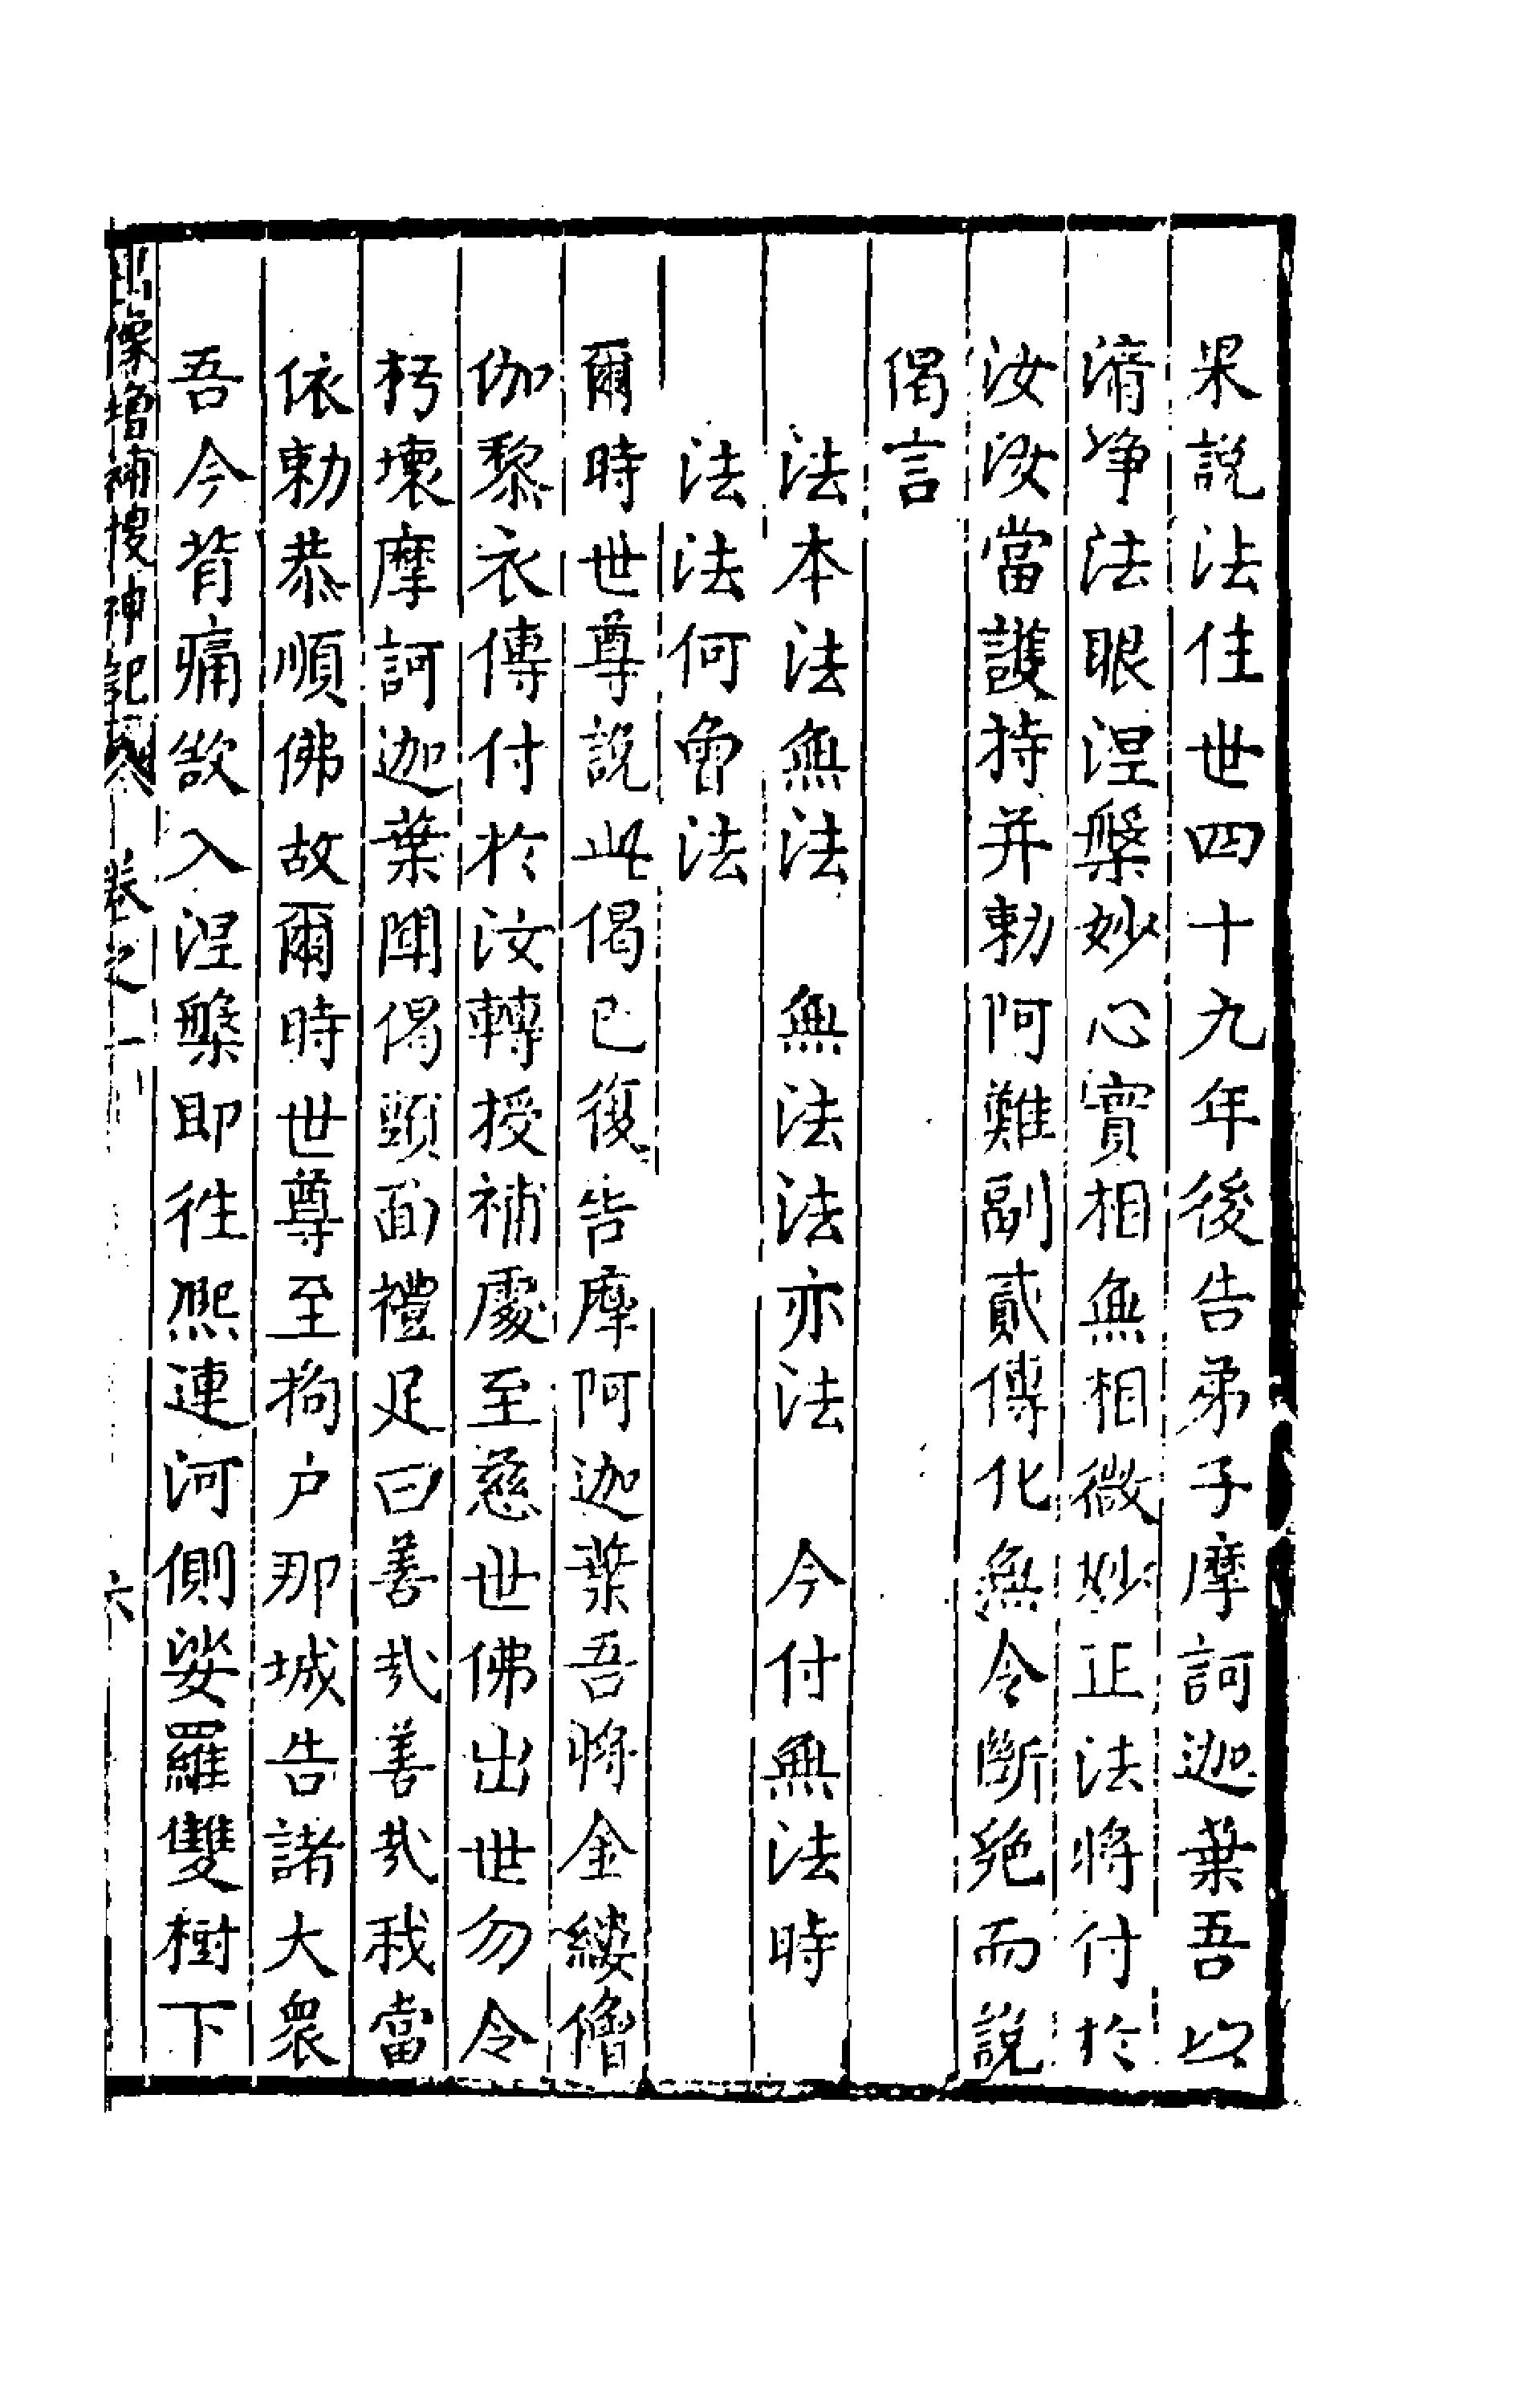 果說法住世四十九年後告弟子摩訶迦葉吾以
淸净法眼涅槃妙心實相無相微妙正法將付於
汝汝當護持并勅阿難副貳傳化無令斷絶而說
偈言
法本法無法　無法法亦法　今付無法時
法法何會法
爾時世尊說此偈已復告摩阿迦葉吾將金縷僧
伽黎衣傳付於汝轉授補處至慈世佛出世勿令
朽壞摩訶迦葉聞偈頭面禮足曰善哉善哉我當
依勅恭順佛故爾時世尊至拘户那城告諸大衆
吾今背痛欲入涅槃即徃熙連河側娑羅雙樹下
像增補搜神記 卷之一 六